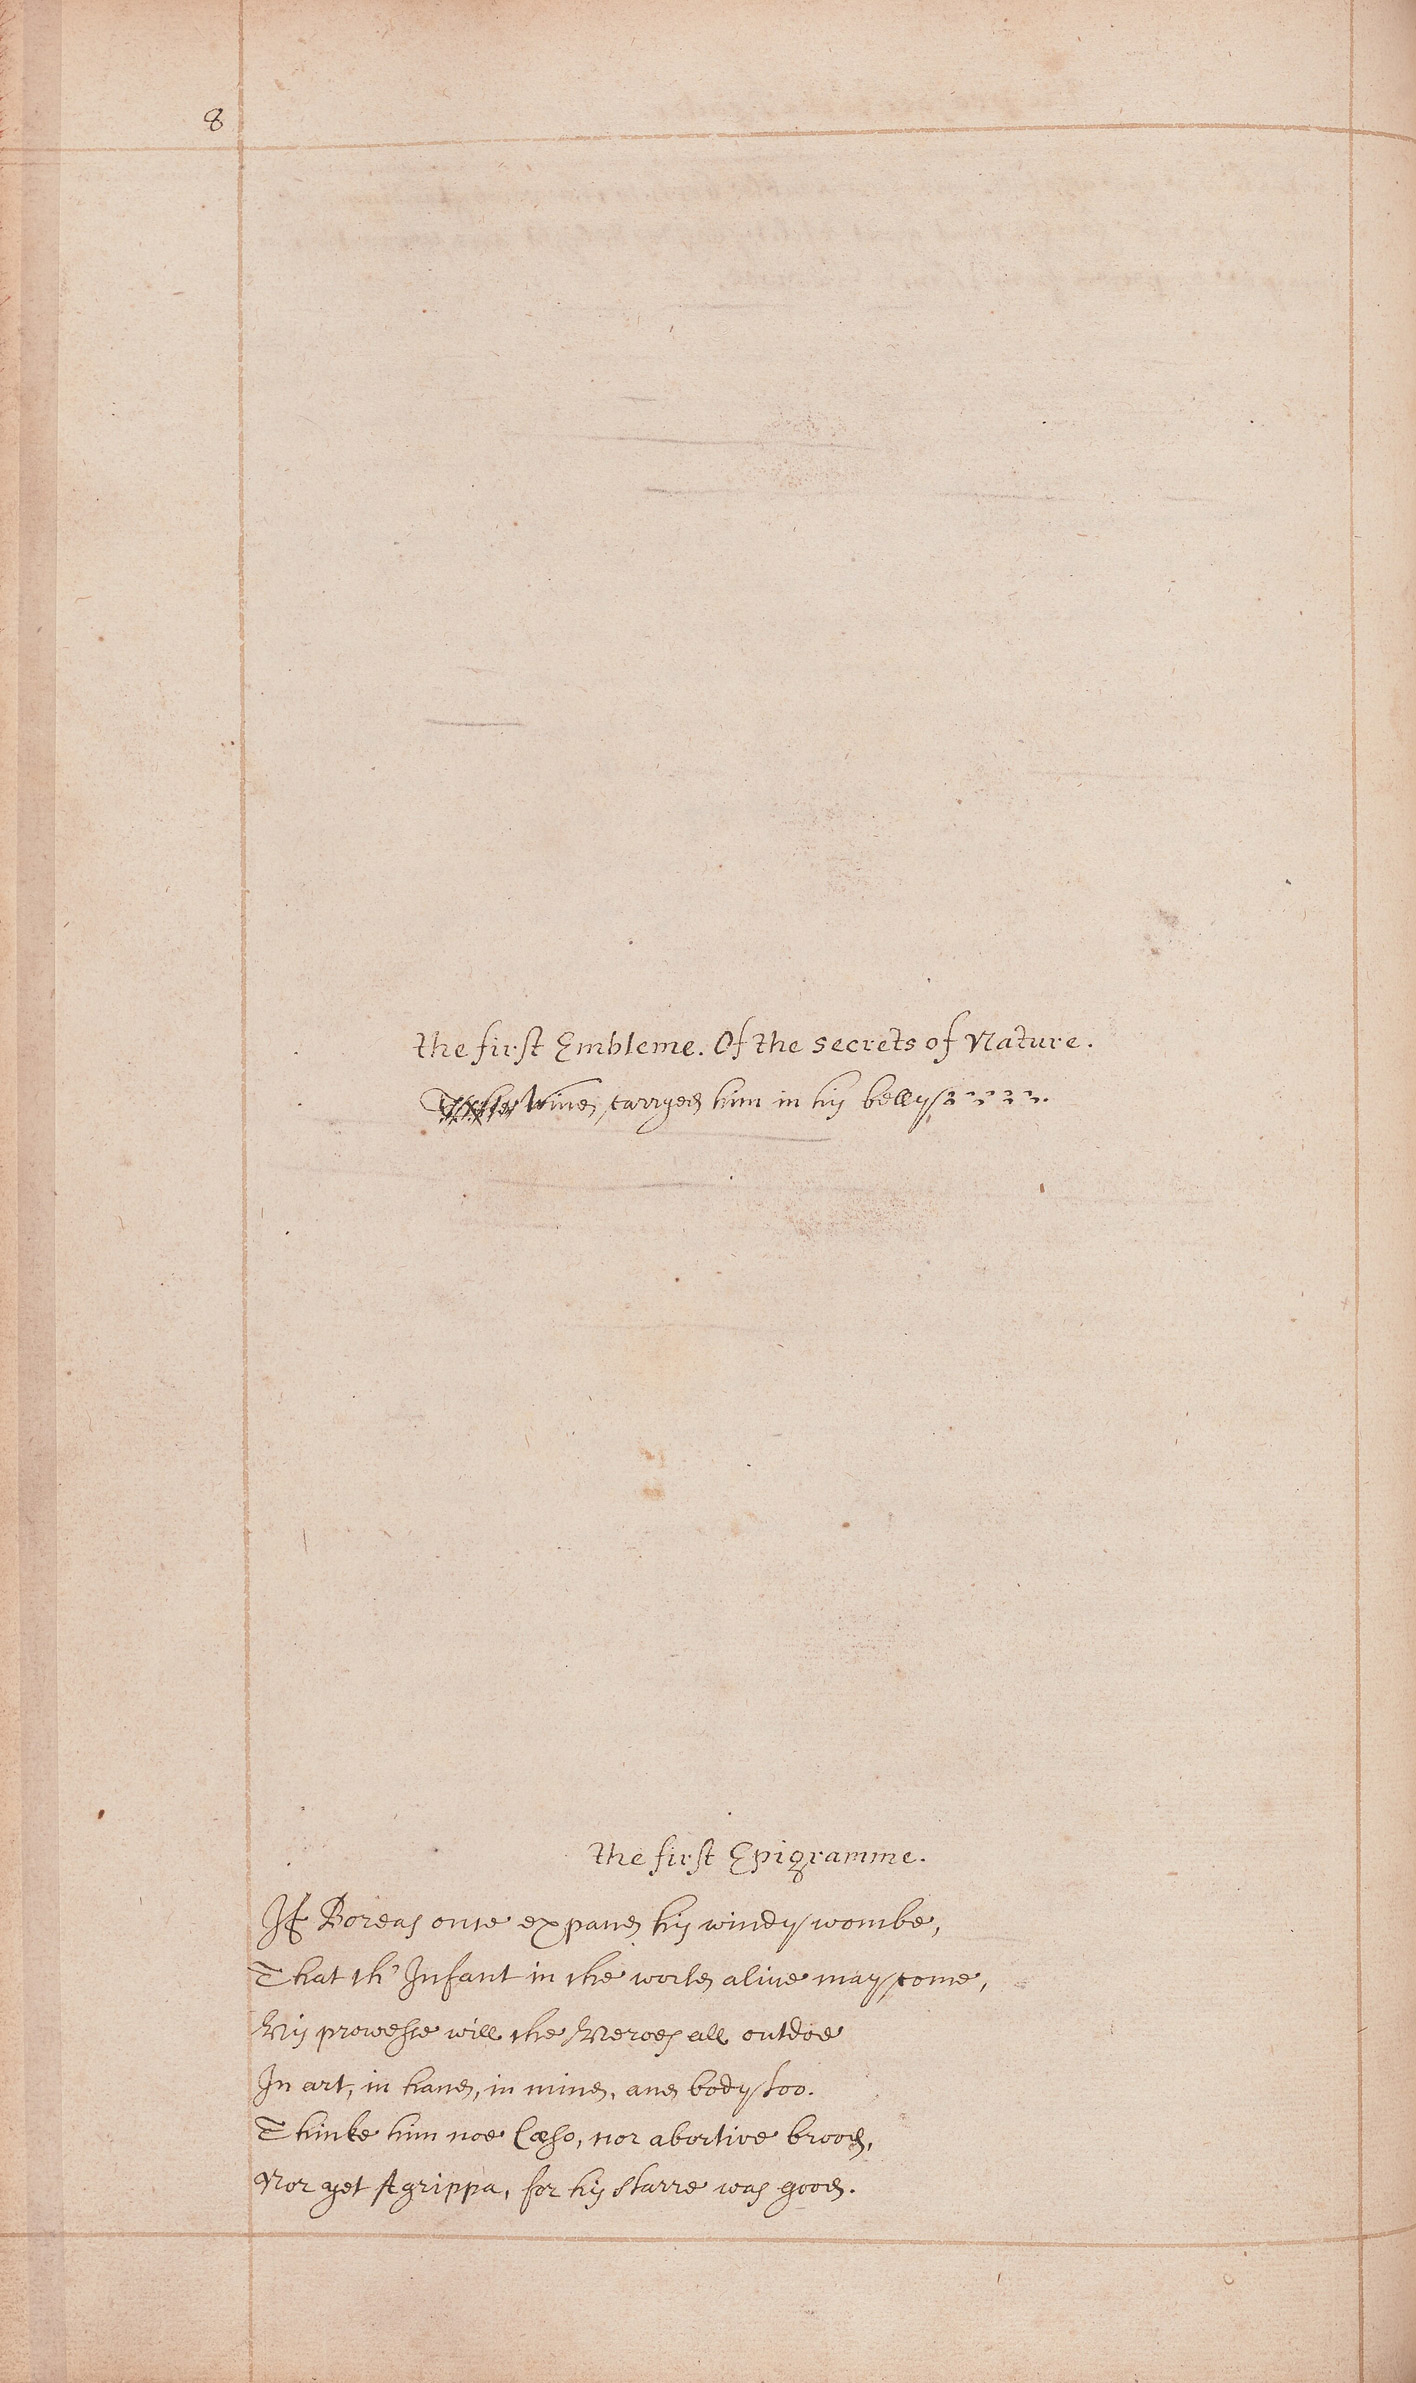 8
the first Embleme. Of the secrets of Nature.
The Wind carryed him in his belly
the first Epigramme.
If Boreas once expand his windy wombe,
That th' Infant in the world alive may come,
His prowesse will the Heroes all outdoe
In art, in hand, in mind, and body too.
Thinke him noe Cæso, nor abortive brood,
Nor yet Agrippa, for his starre was good.